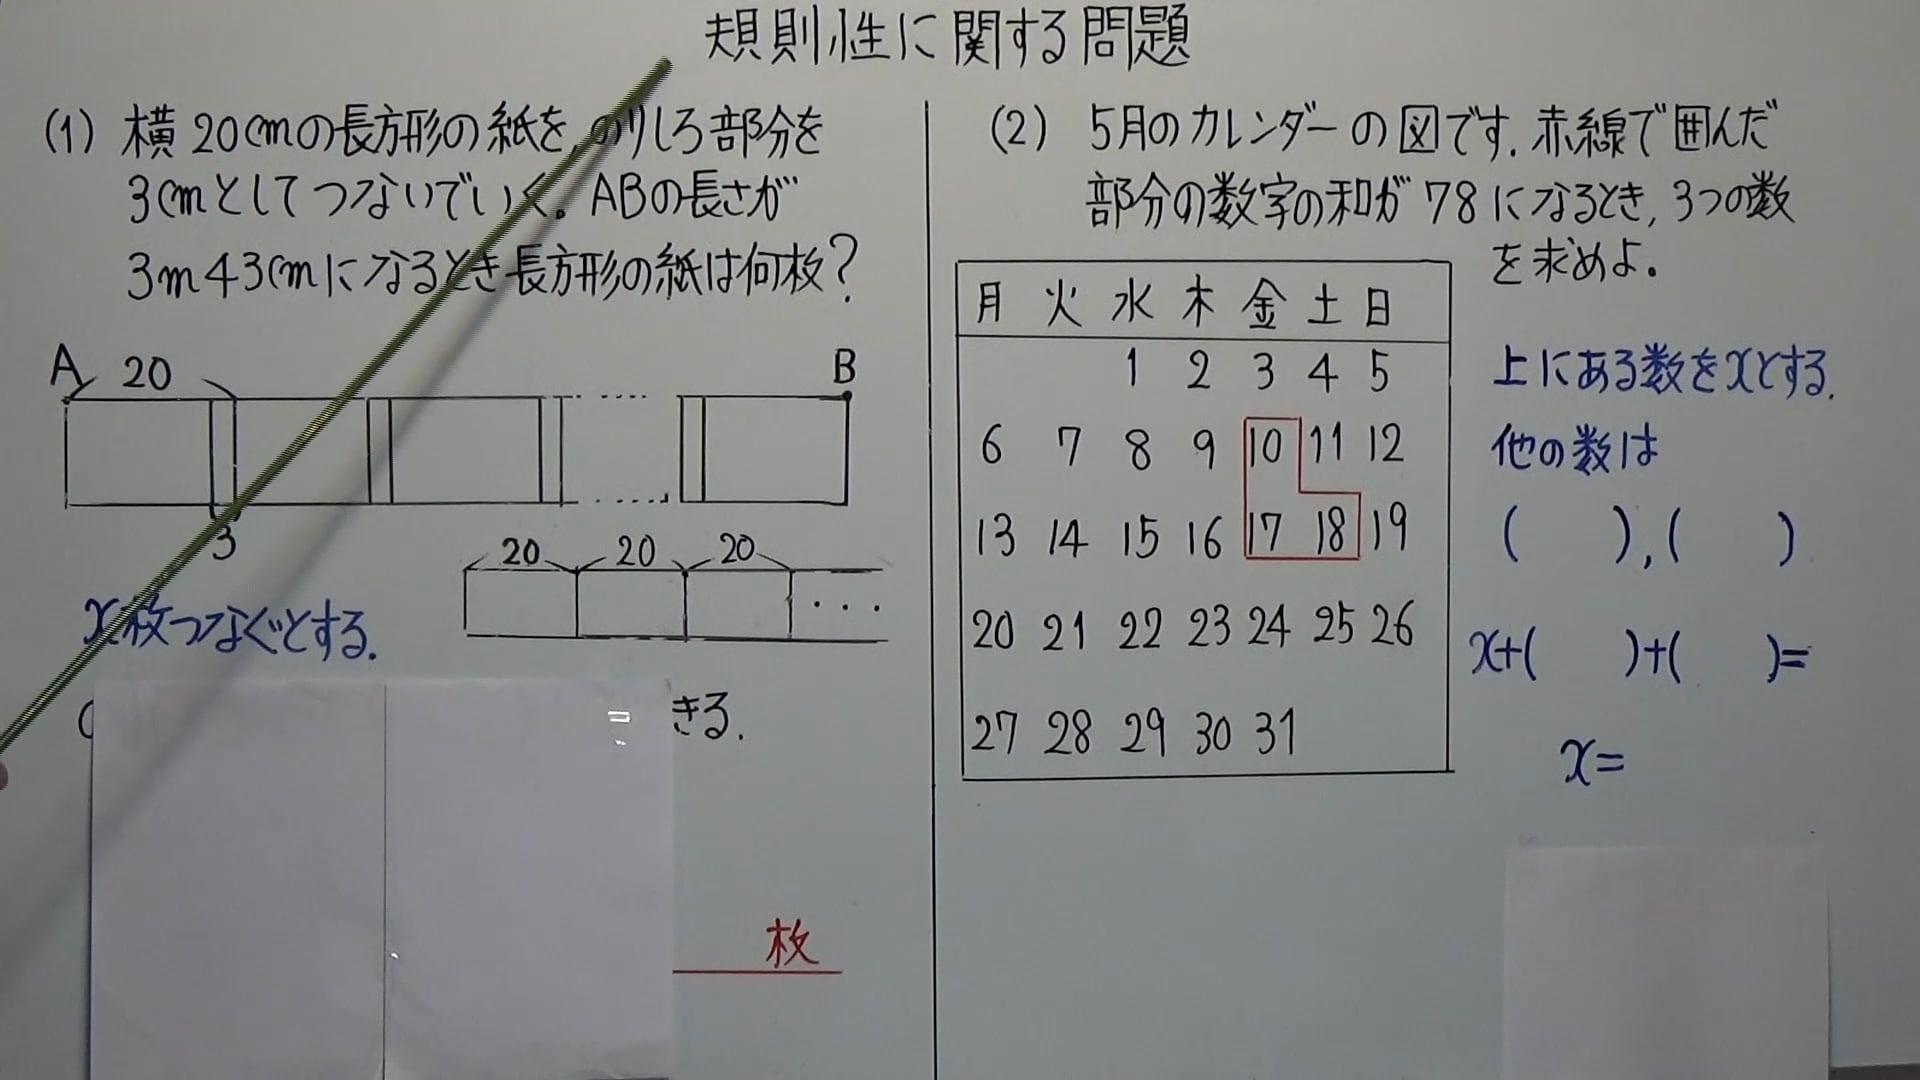 規則性に関する問題
(1) 横20cmの長方形の紙を、のりしろ部分を
3cmとしてつないでいく。ABの長さが
3m43cmになるとき長方形の紙は何枚?
A 20 B
3
20 20 20
・・・
x枚つなぐとする.
きる.
枚
(2) 5月のカレンダーの図です.赤線で囲んだ
部分の数字の和が78になるとき,3つの数
を求めよ.
月 火 水 木 金 土 日
1 2 3 4 5
6 7 8 9 10 11 12
13 14 15 16 17 18 19
20 21 22 23 24 25 26
27 28 29 30 31
上にある数をxとする.
他の数は
( ),( )
x+( )+( )=
x=